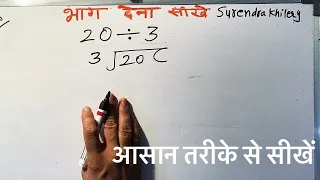 भाग देना सीखे Surendra Khilery
20 ÷ 3
3 √20 (
आसान तरीके से सीखें